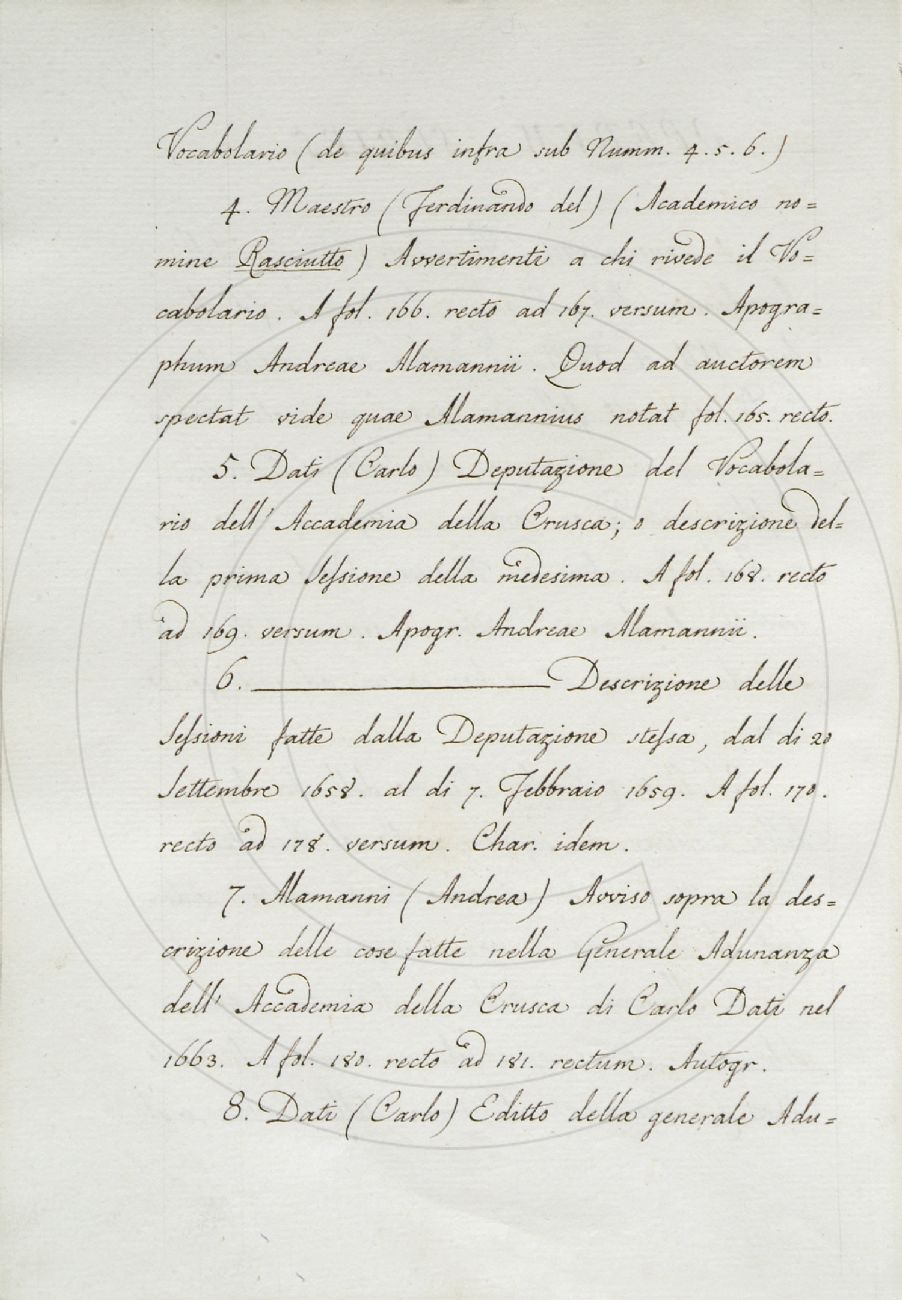 Vocabolario (de quibus infra sub Numm. 4. 5. 6.)
4. Maestro (Ferdinando del) (Academico no=
mine Rasciutto) Avvertimenti a chi rivede il Vo=
cabolario. A fol. 166. recto ad 167. versum. Apogra=
phum Andreae Alamannii. Quod ad auctorem
spectat vide quae Alamannius notat fol. 165. recto.
5. Dati (Carlo) Deputazione del Vocabola=
rio dell' Accademia della Crusca; o descrizione del=
la prima Sessione della medesima. A fol. 168. recto
ad 169. versum. Apogr. Andreae Alamannii.
6. ——— Descrizione delle
Sessioni fatte dalla Deputazione stessa, dal di 20
Settembre 1658. al di 7. Febbraio 1659. A fol. 170.
recto ad 178. versum. Char. idem.
7. Alamanni (Andrea) Avviso sopra la des=
crizione delle cose fatte nella Generale Adunanza
dell' Accademia della Crusca di Carlo Dati nel
1663. A fol. 180. recto ad 181. rectum. Autogr.
8. Dati (Carlo) Editto della generale Adu=